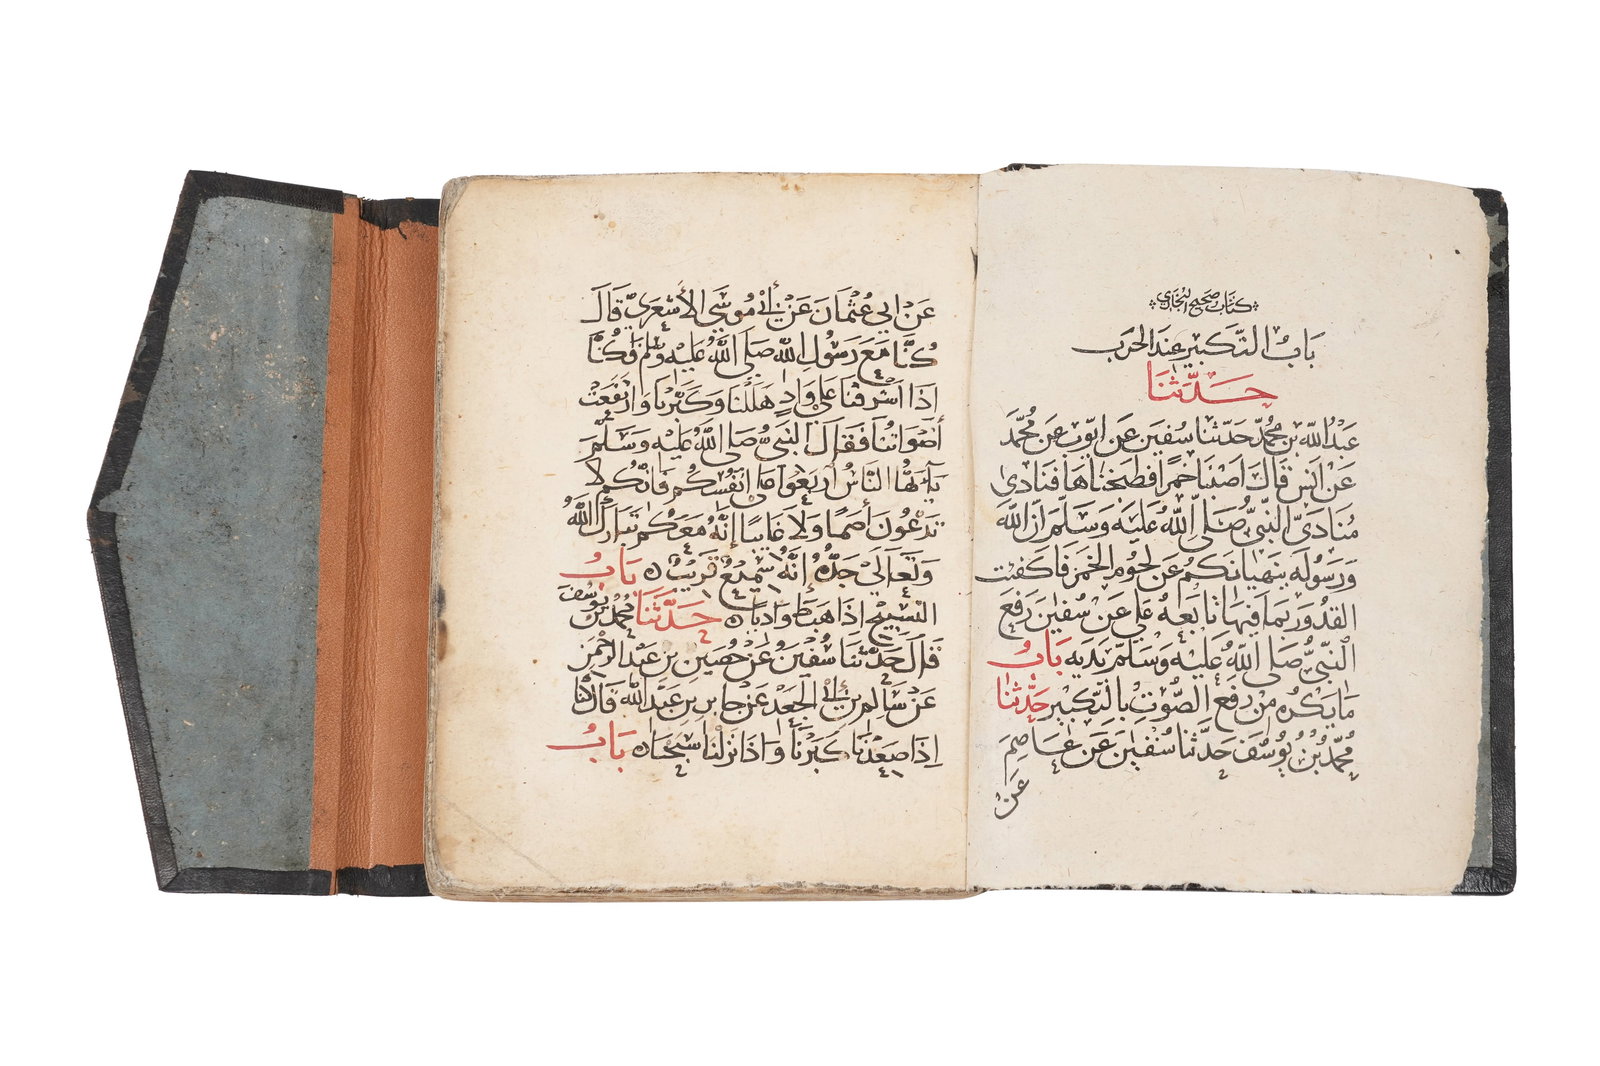 كتاب صحيح البخاري
بَابُ التَّكبيرِ عِندَ الحَرَبِ
حَدَّثَنَا
عَبْدُ اللّٰه بن مُحَمَّد حَدَّثنا سُفين عَن ايّوب عَن مُحَمَّد
عَنْ انَسٍ قَالَ اَصَبْنَا حُمرًا فطبَخناهَا فَنَادى
مُنَادى النَّبِيِّ صَلى اللّٰهُ عَليْه وَسَلّمَ انّ اللّٰهَ
وَرَسُولَه ينهَيانكم عَن لحُوم الحُمر فاكفئت
القدُور بمَا فيهَا تابَعَه عَلي عَنْ سُفينَ رَفعَ
النّبيُّ صَلى اللّٰهُ عَليْه وَسَلّمَ يَديه بَابُ
مَا يكرَه مِنْ رَفع الصَّوتِ بِالتّكبير حَدَّثنَا
مُحَمَّدُ بْنُ يُوسُفَ حَدّثنا سُفيْنَ عَنْ عَاصِمَ
عَنْ
عَنْ ابي عُثمَانَ عَنْ أبي مُوسَي الأشعَرِيّ قَالَ
كُنّا مَعَ رَسُولِ اللّٰه صَلي اللّٰهُ عَليْه وَسَلم فكُنَّا
اِذَا اَشْرَفنَا عَلي وَادٍ هَلّلنَا وَكَبّرنَا وَارْتفَعَتْ
أصْوَاتُنا فَقَالَ النّبيُّ صَلى اللّٰهُ عَليْه وَسَلّمَ
يَآيّهَا النَّاسُ اربَعُوا عَلي انفُسِكُم فَانّكُم لا
تَدعُونَ أصمًا وَلَا غَايبًا إِنّهُ مَعَكُم تَبارَك اللّٰهُ
وَتَعَالَي جَدُّه إِنّهُ سَمِيعٌ قَرِيبٌ ه بَابُ
التسبيح اذَا هَبَطَ وَاديًا ه حَدَّثَنَا مُحَمَّد بْن يُوسُفَ
قَالَ حَدّثنَا سُفيْنُ عَنْ حُصَين بن عَبْدِ الرَّحْمٰن
عَنْ سَالِم بن أبي الجَعْد عَنْ جابر بن عَبْد اللّٰه قَالَ كُنَّا
إِذَا صَعِدْنَا كَبّرْنَا وَاذَا نَزلنَا سَبّحنَا ه بَابُ